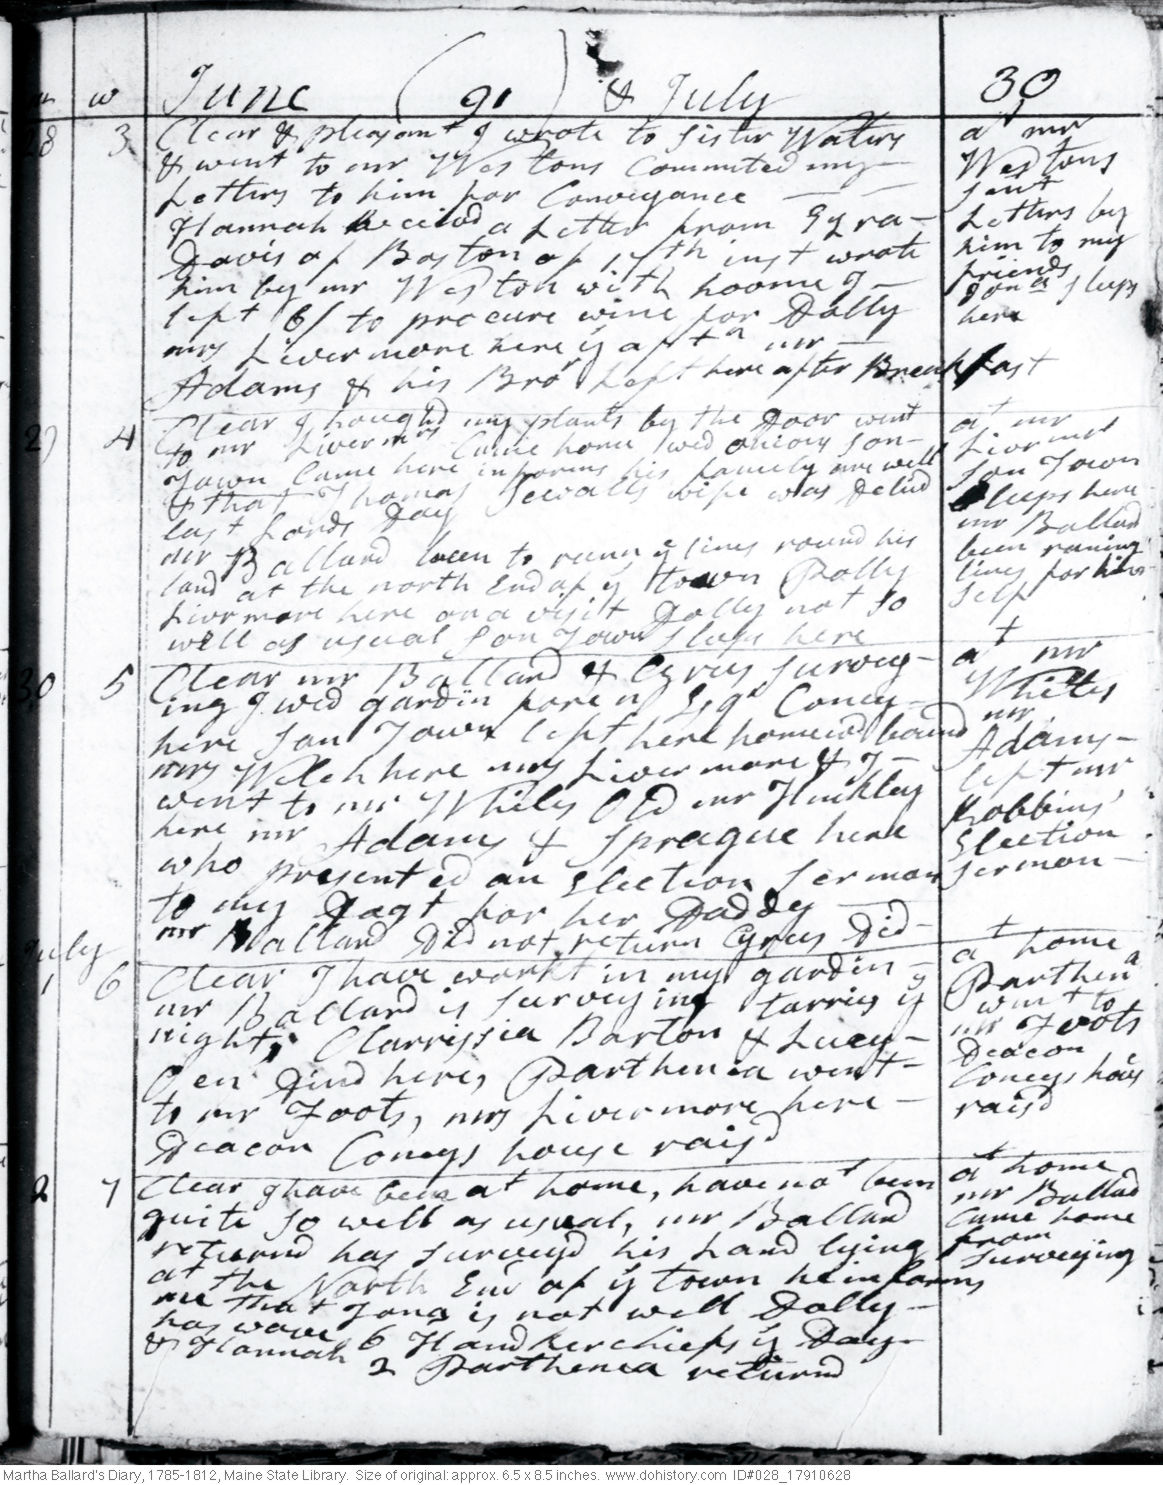 m w June (91) & July 30
28 3 Clear & pleasant I wrote to sister Waters
& went to mr Westons Commited my
Letters to him for Conveyance
Hannah Received a Letter from Ezra
Davis of Boston of 17th inst wrote
him by mr Weston with hoome I
sept 6/ to procure wine for Dolly
mrs Livermore here ys aftn mr
Adams & his Bror Left here after Break fast
at mr
Westons
sent
Letters by
him to my
friends
Jona sleeps
here
29 4 Clear I houghd my plants by the Door went
to mr Livermrs Came home wed onions son
Town Came here informs his family are well
& that Thomas Sewalls wife was Delivd
last Lords Day
mr Ballard been to runn ys lines round his
land at the north End of ys town Polly
Livermore here on a visit Dolly not so
well as usual son Town sleeps here
at mr
Livermrs
son Town
sleeps here
mr Ballard
been runing
lines for him
self
30 5 Clear mr Ballard & Cyrus survey
ing I wed gardin fore n Esqr Coney
here son Town left here homeward bound
mrs Welch here mrs Livermore & I
went to mr Whites Old mr Hinkley
here mr Adams & Sprague here
who presented an Election sermon
to my Dagt for her Daddy
mr Ballard Did not return Cyrus Did
at mr
Whites
mr
Adams
left mr
Robbins'
Election
sermon
July
1 6 Clear I have workt in my gardin
mr Ballard is surveying tarries ys
night, Clarrissia Barton & Lucy
here, Parthenia went
to mr Foots, mrs Livermore here
Deacon Coneys house raisd
at home
Parthena
went to
mr Foots
Deacon
Coneys hous
raisd
2 7 Clear I have been at home, have not been
quite so well as usual, mr Ballard
returnd has surveyd his Land lying
at the North End of ys town he informs
me that Jona is not well Dolly
has wove 6 Handkerchiefs ys Day
& Hannah 2 Parthenia returnd
at home
mr Ballard
Came home
from
surveying
Martha Ballard's Diary, 1785-1812, Maine State Library. Size of original: approx. 6.5 x 8.5 inches. www.dohistory.com ID#028_17910628